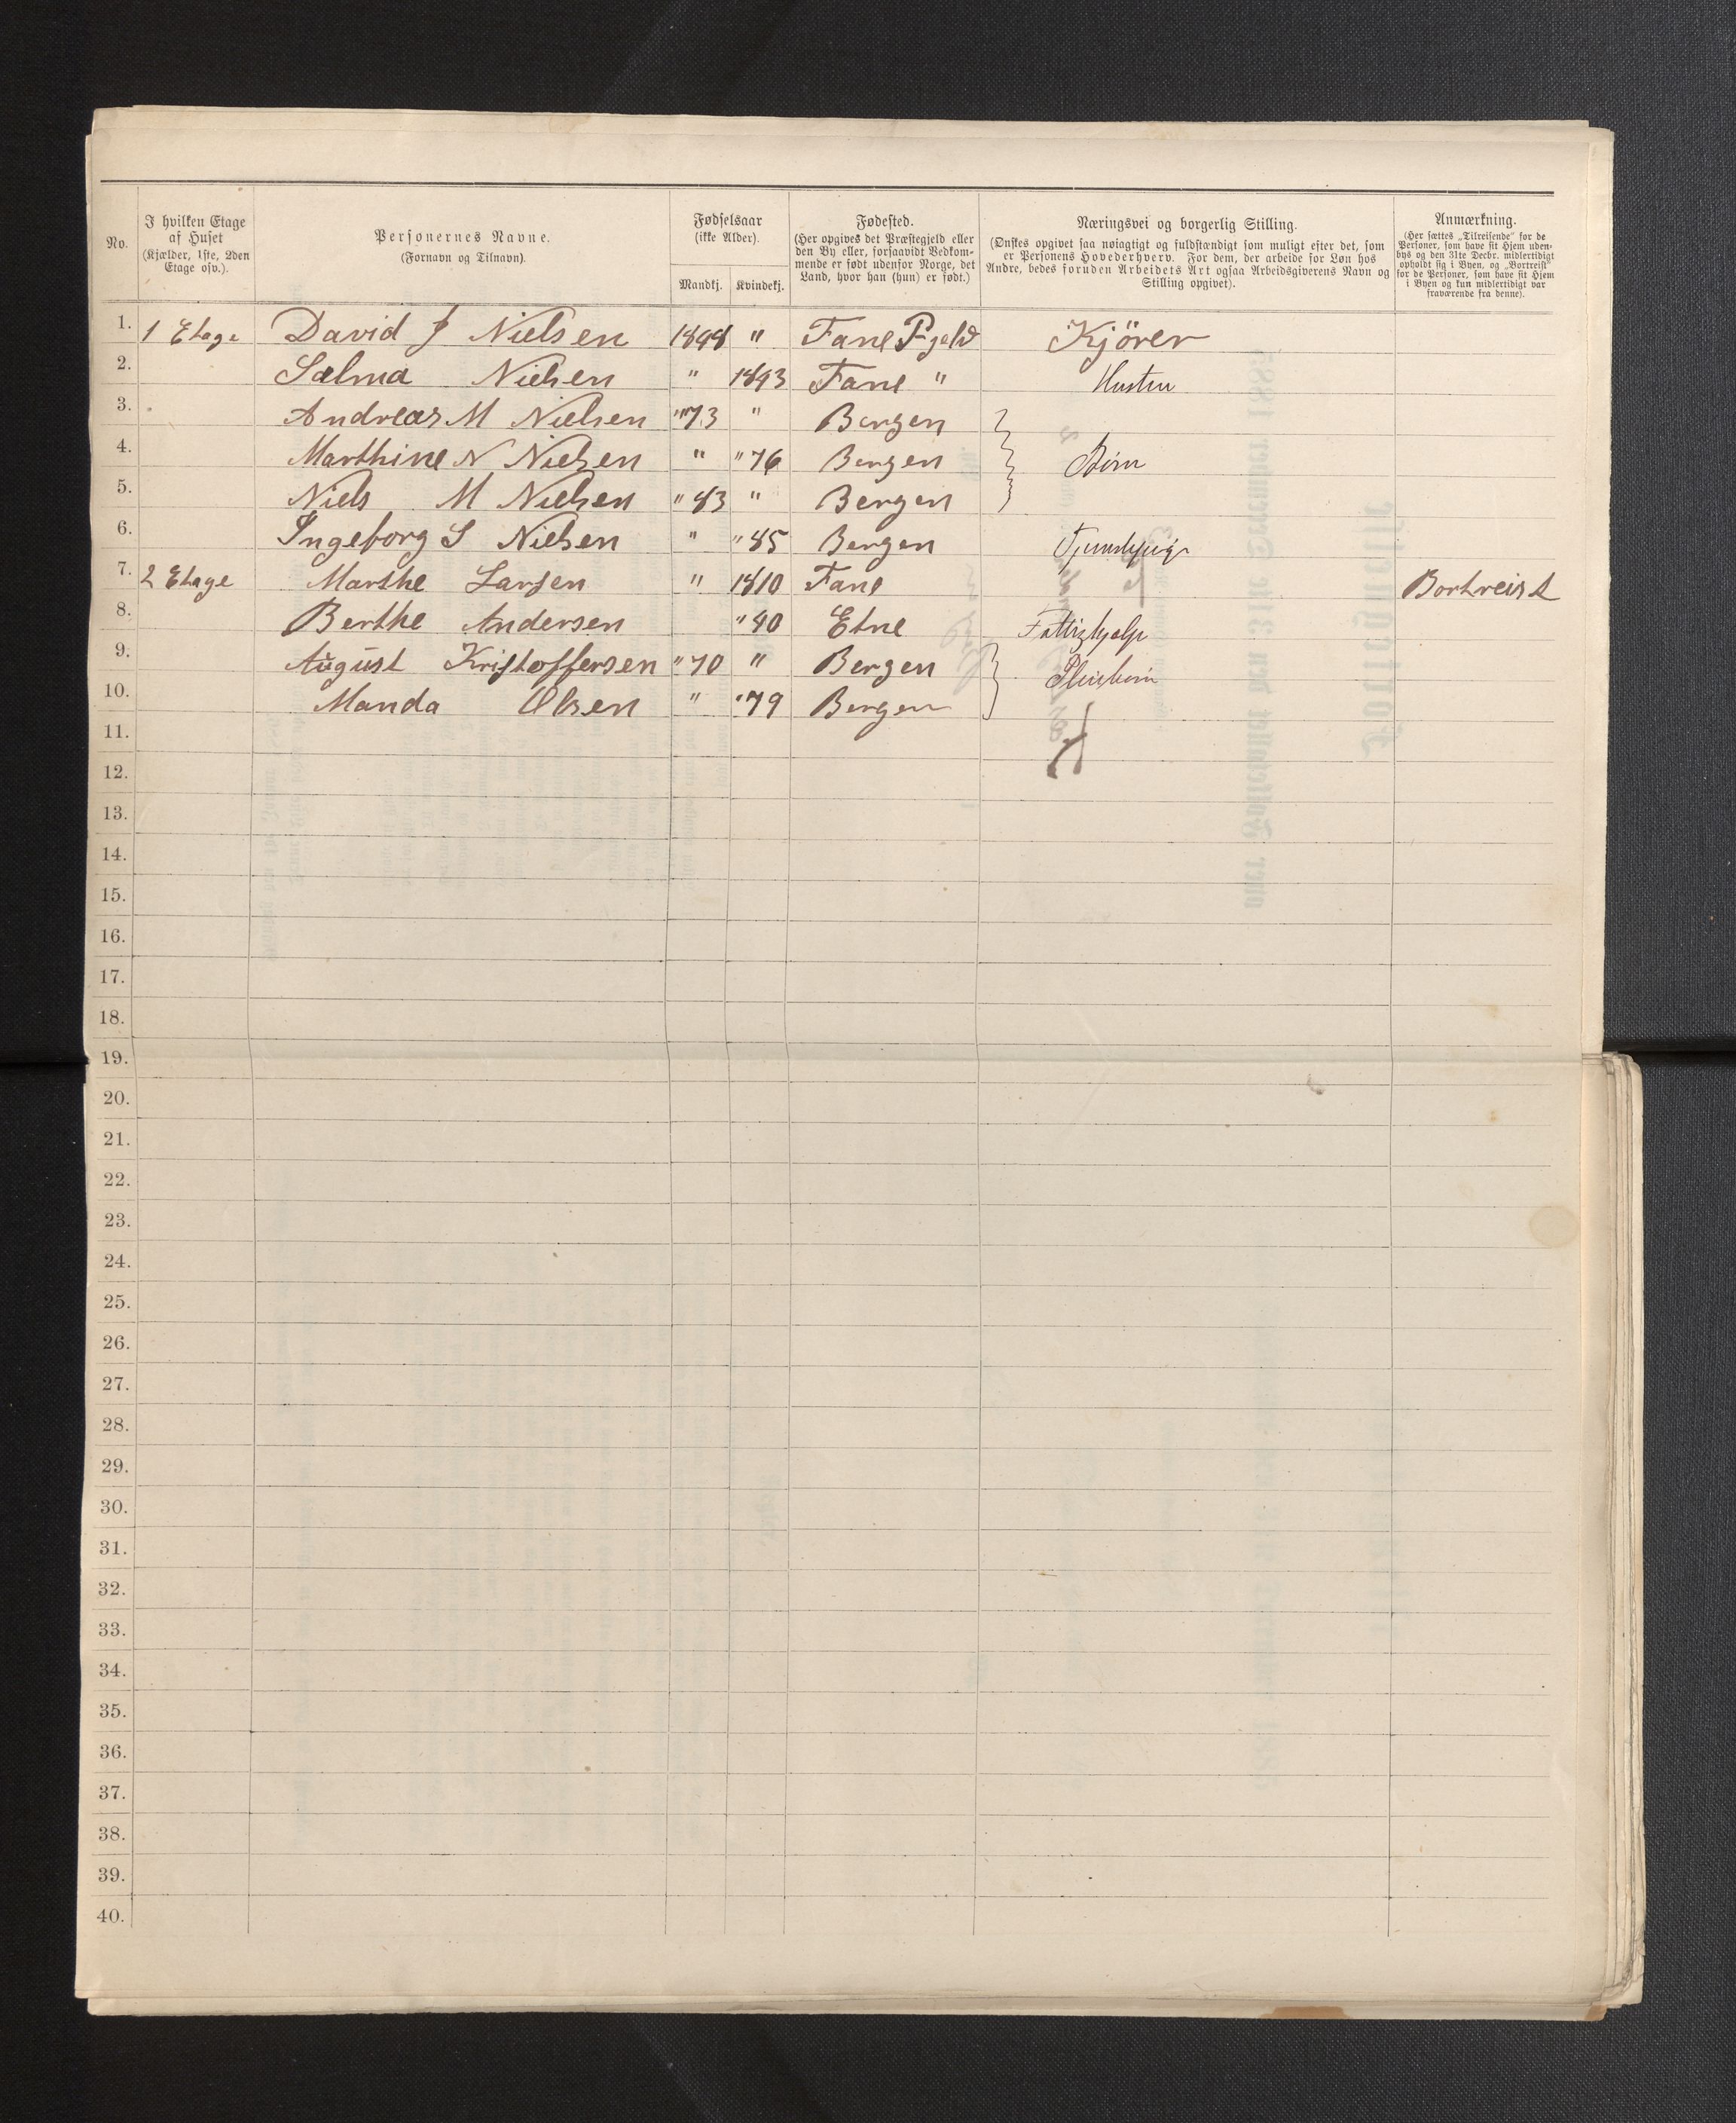 No.
I hvilken Etage af Huset (Kjælder, 1ste, 2den Etage osv.).
Personernes Navne. (Fornavn og Tilnavn).
Fødselsaar (ikke Alder).
Mandkj.
Kvindekj.
Fødested. (Her opgives det Præstegjeld eller den By eller, forsaavidt Vedkommende er født udenfor Norge, det Land, hvor han (hun) er født.)
Næringsvei og borgerlig Stilling. (Ønskes opgivet saa nøiagtigt og fuldstændigt som muligt efter det, som er Personens Hovederhverv. For dem, der arbeide for Løn hos Andre, bedes foruden Arbeidets Art ogsaa Arbeidsgiverens Navn og Stilling opgivet).
Anmærkning. (Her sættes „Tilreisende" for de Personer, som have sit Hjem udenbys og den 31te Decbr. midlertidigt opholdt sig i Byen, og „Bortreist" for de Personer, som have sit Hjem i Byen og kun midlertidigt var fraværende fra denne).
1. 1 Etage David J Nielsen 1848 " Fane Pgjeld Kjörer
2. Salma Nielsen " 1843 Fane " Hustru
3. Andreas M Nielsen "73 " Bergen
4. Marthine N Nielsen " "76 Bergen Börn
5. Niels M Nielsen "83 " Bergen
6. Ingeborg S Nielsen " "85 Bergen
7. 2 Etage Marthe Larsen " 1810 Fane Bortreist
8. Berthe Andersen "40 Etne Fattighjelp
9. August Kristoffersen "70 " Bergen Pleiebörn
10. Manda Olsen " "79 Bergen
11.
12.
13.
14.
15.
16.
17.
18.
19.
20.
21.
22.
23.
24.
25.
26.
27.
28.
29.
30.
31.
32.
33.
34.
35.
36.
37.
38.
39.
40.